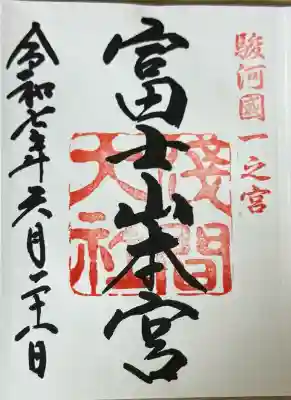 駿河國一之宮
富士山本宮
淺間大社
令和七年六月二十八日